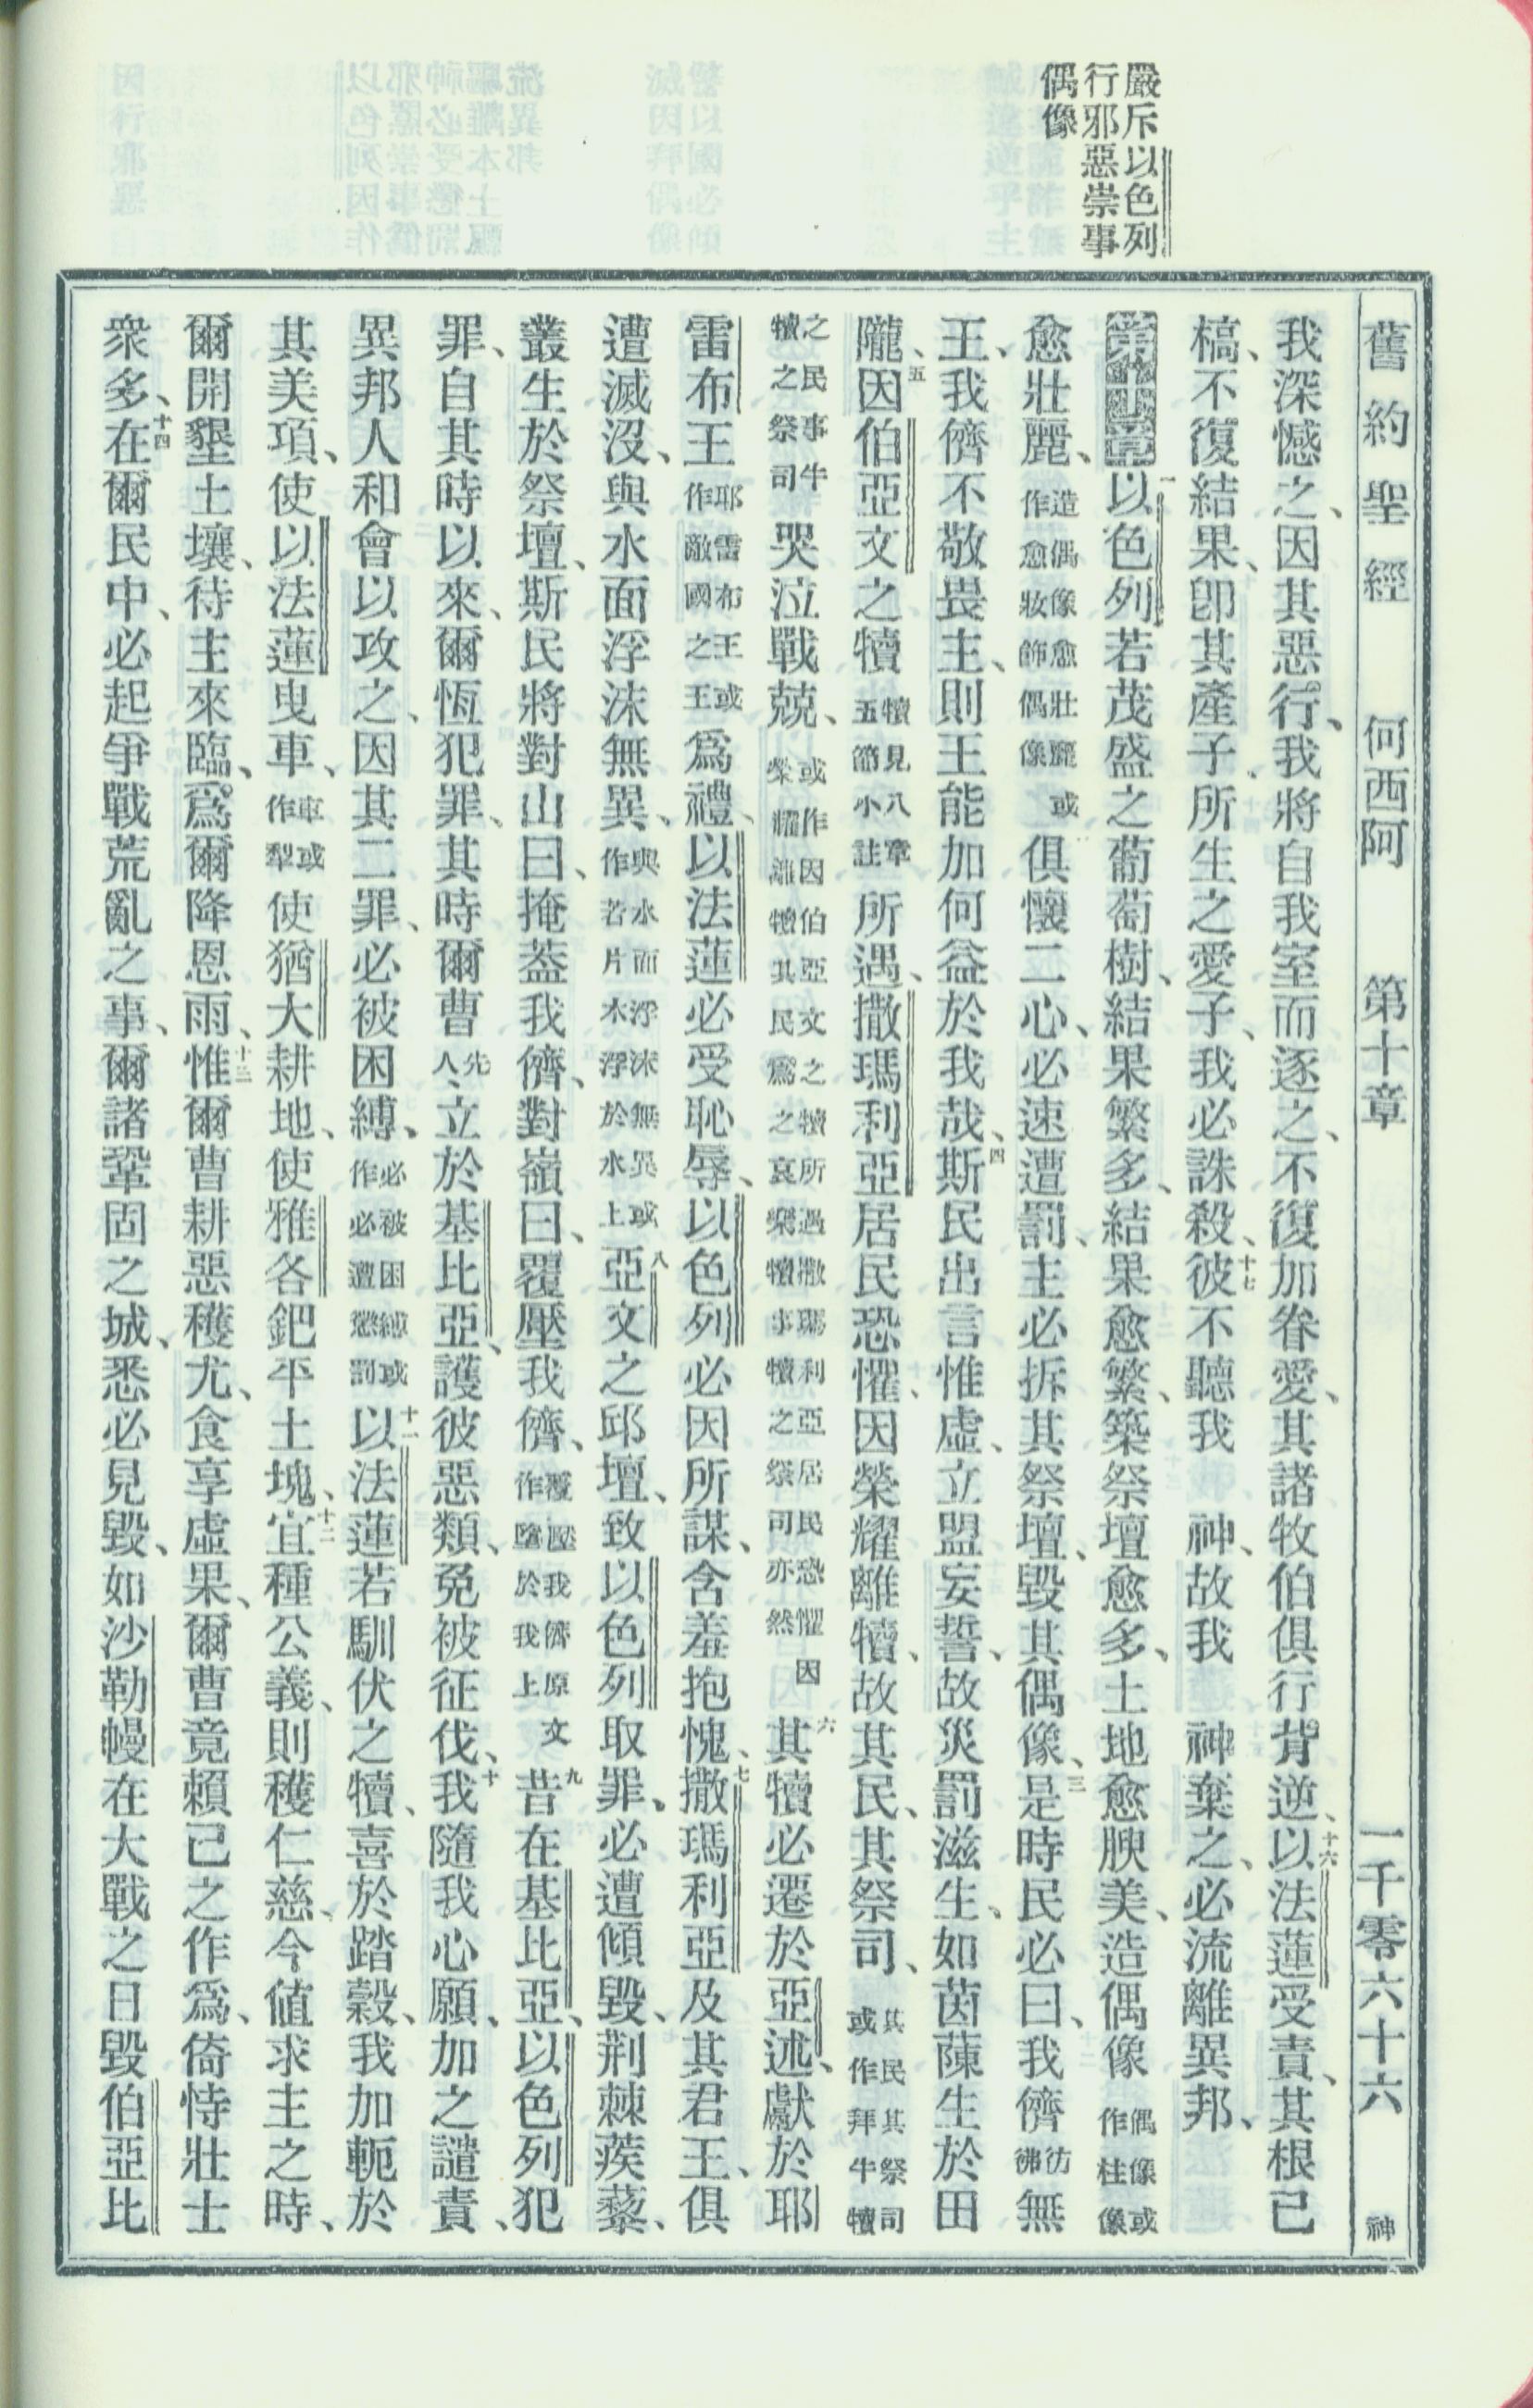 嚴斥以色列
行邪惡崇事
偶像
舊約聖經 何西阿 第十章 一千零六十六 神
我深憾之、因其惡行、我將自我室而逐之、不復加眷愛、其諸牧伯俱行背逆、十六以法蓮受責、其根已
槁、不復結果、卽其產子、所生之愛子、我必誅殺、十七彼不聽我 神、故我 神棄之、必流離異邦、
第十章 一以色列若茂盛之葡萄樹、結果繁多、結果愈繁、築祭壇愈多、土地愈腴美、造偶像偶像或作柱像
愈壯麗、造偶像愈壯麗或作愈妝飾偶像二俱懷二心、必速遭罰、主必拆其祭壇、毀其偶像、三是時民必曰、我儕彷彿無
王、我儕不敬畏主、則王能加何益於我哉、四斯民出言惟虛、立盟妄誓、故災罰滋生、如茵蔯生於田
隴、五因伯亞文之犢犢見八章五節小註所遇、撒瑪利亞居民恐懼、因榮耀離犢、故其民、其祭司、其民其祭司或作拜牛犢
之民事牛犢之祭司哭泣戰兢、或作因伯亞文之犢所遇撒瑪利亞居民恐懼因榮耀離犢其民爲之哀樂犢事犢之祭司亦然六其犢必遷於亞述、獻於耶
雷布王耶雷布王或作敵國之王爲禮、以法蓮必受恥辱、以色列必因所謀、含羞抱愧、七撒瑪利亞及其君王、俱
遭滅沒、與水面浮沫無異、與水面浮沫無異或作若片木浮於水上八亞文之邱壇、致以色列取罪、必遭傾毀、荆棘蒺藜、
叢生於祭壇、斯民將對山曰、掩葢我儕、對嶺曰、覆壓我儕、覆壓我儕原文作墮於我上九昔在基比亞、以色列犯
罪、自其時以來、爾恆犯罪、其時爾曹先人、立於基比亞、護彼惡類、免被征伐、十我隨我心願、加之譴責、
異邦人和會以攻之、因其二罪、必被困縛、必被困縛或作必遭懲罰十一以法蓮若馴伏之犢、喜於踏穀、我加軛於
其美項、使以法蓮曳車、車或作犁使猶大耕地、使雅各鈀平土塊、十二宜種公義、則穫仁慈、今値求主之時、
爾開墾土壤、待主來臨、爲爾降恩雨、十三惟爾曹耕惡穫尤、食享虛果、爾曹竟賴己之作爲、倚恃壯士
衆多、十四在爾民中、必起爭戰荒亂之事、爾諸鞏固之城、悉必見毀、如沙勒幔在大戰之日毀伯亞比